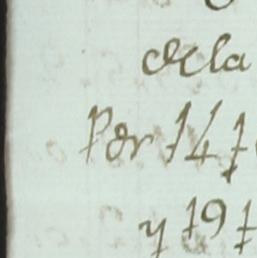 dela
Por 147
y 197